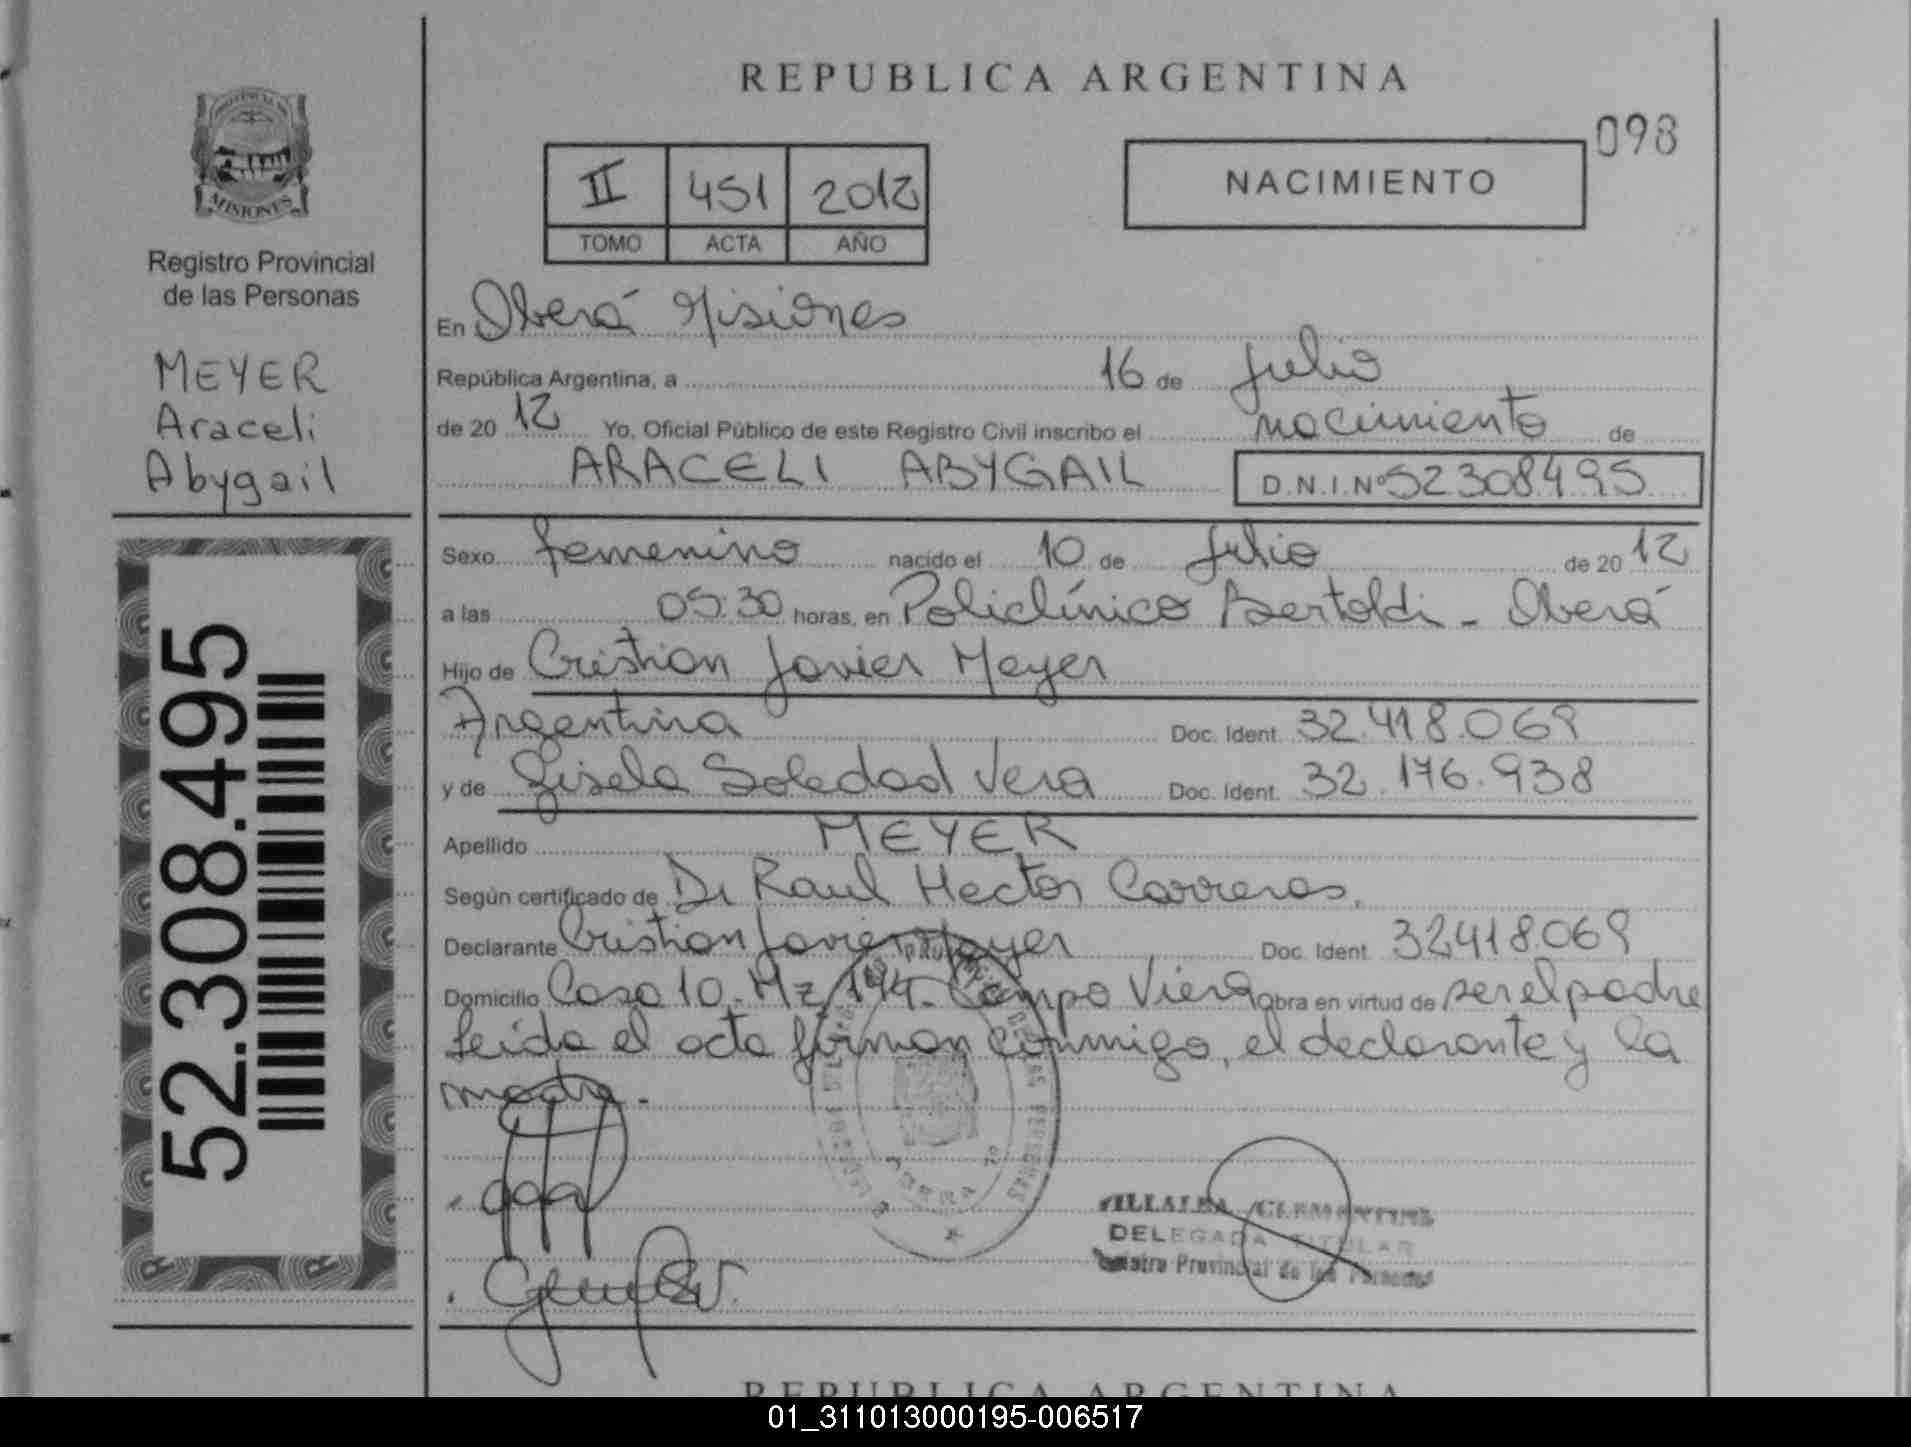 REPUBLICA ARGENTINA
098
II 451 2012
TOMO ACTA AÑO
NACIMIENTO
MISIONES
Registro Provincial
de las Personas
MEYER
Araceli
Abygail
52.308.495
En Oberá Misiones
República Argentina, a 16 de Julio
de 20 12 Yo, Oficial Público de este Registro Civil inscribo el nacimiento de
ARACELI ABYGAIL D.N.I.Nº 52308495
Sexo femenino nacido el 10 de Julio de 20 12
a las 05:30 horas, en Policlínico Bertoldi - Oberá
Hijo de Cristian Javier Meyer
Argentina Doc. Ident. 32.418.069
y de Gisela Soledad Vera Doc. Ident. 32.176.938
Apellido MEYER
Según certificado de Dr Raul Hector Carreras.
Declarante Cristian Javier Meyer Doc. Ident. 32418.069
Domicilio Casa 10 - Mz 144 - Campo Viera obra en virtud de ser el padre
leida el acta firman conmigo, el declarante y la
madre.
VILLALBA CLEMENTINA
DELEGADA TITULAR
Registro Provincial de las Personas
REPUBLICA ARGENTINA
01_311013000195-006517